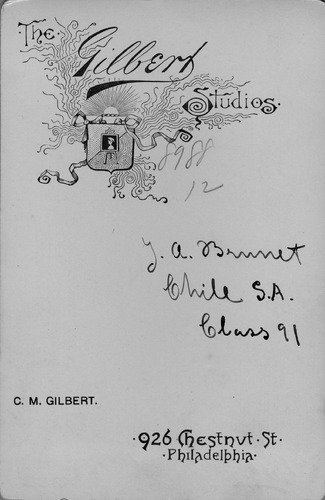 The Gilbert Studios.
8988
12
J. A. Brunet
Chile S.A.
Class 91
C. M. GILBERT.
·926 Chestnut·St·
·Philadelphia·